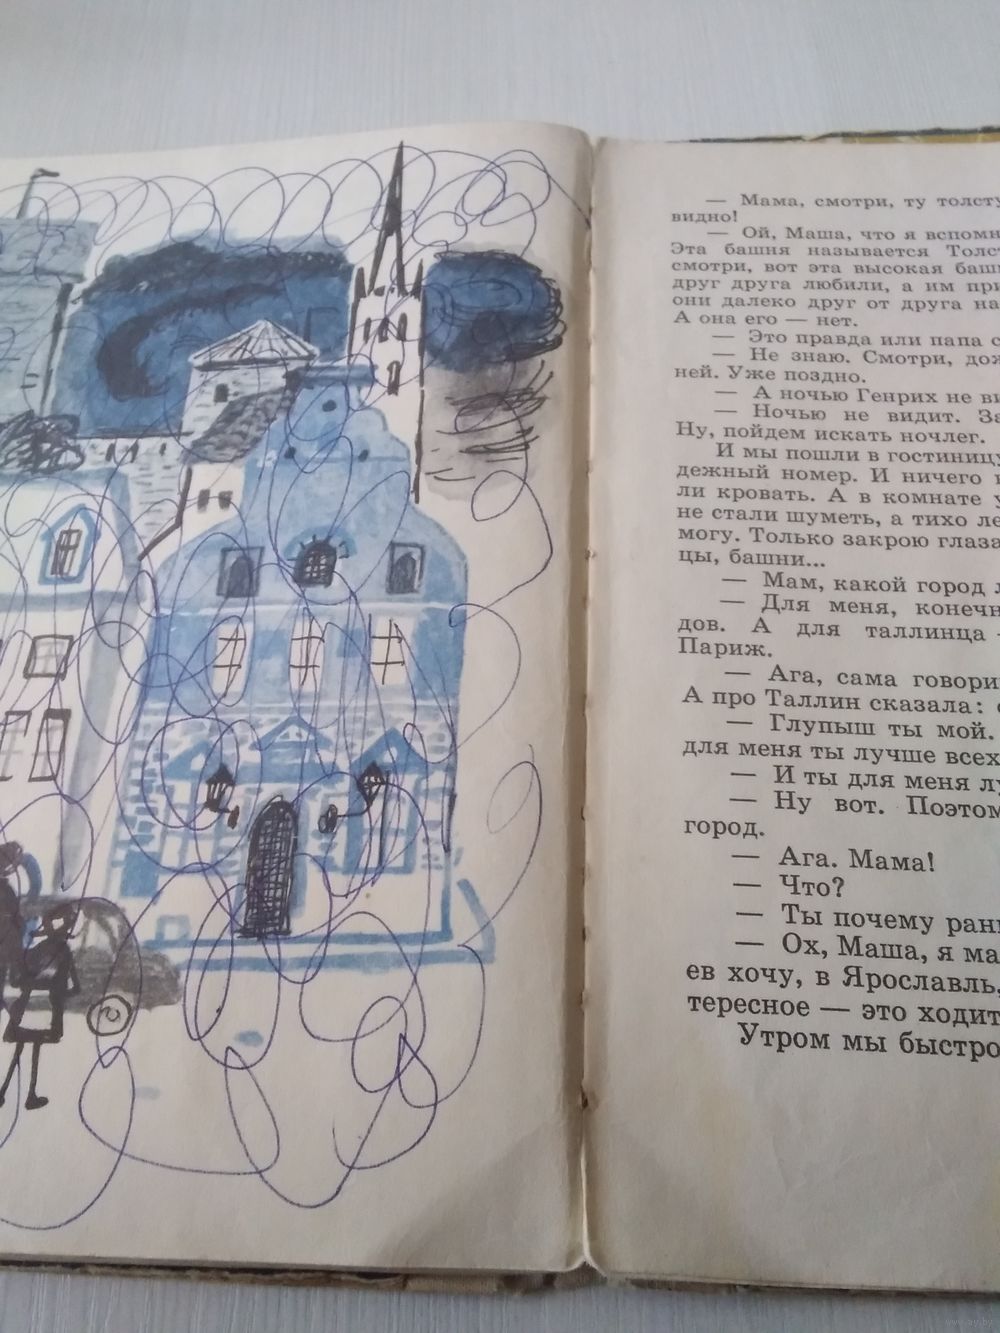 — Мама, смотри, ту толсту
видно!
— Ой, Маша, что я вспомн
Эта башня называется Толс
смотри, вот эта высокая баш
друг друга любили, а им при
они далеко друг от друга на
А она его — нет.
— Это правда или папа с
— Не знаю. Смотри, дож
ней. Уже поздно.
— А ночью Генрих не ви
— Ночью не видит. За
Ну, пойдем искать ночлег.
И мы пошли в гостиницу
дежный номер. И ничего
ли кровать. А в комнате у
не стали шуметь, а тихо ле
могу. Только закрою глаза
цы, башни...
— Мам, какой город л
— Для меня, конечн
дов. А для таллинца
Париж.
— Ага, сама говори
А про Таллин сказала:
— Глупыш ты мой.
для меня ты лучше всех
— И ты для меня лу
— Ну вот. Поэтом
город.
— Ага. Мама!
— Что?
— Ты почему ран
— Ох, Маша, я ма
ев хочу, в Ярославль,
тересное — это ходит
Утром мы быстро
www.ay.by